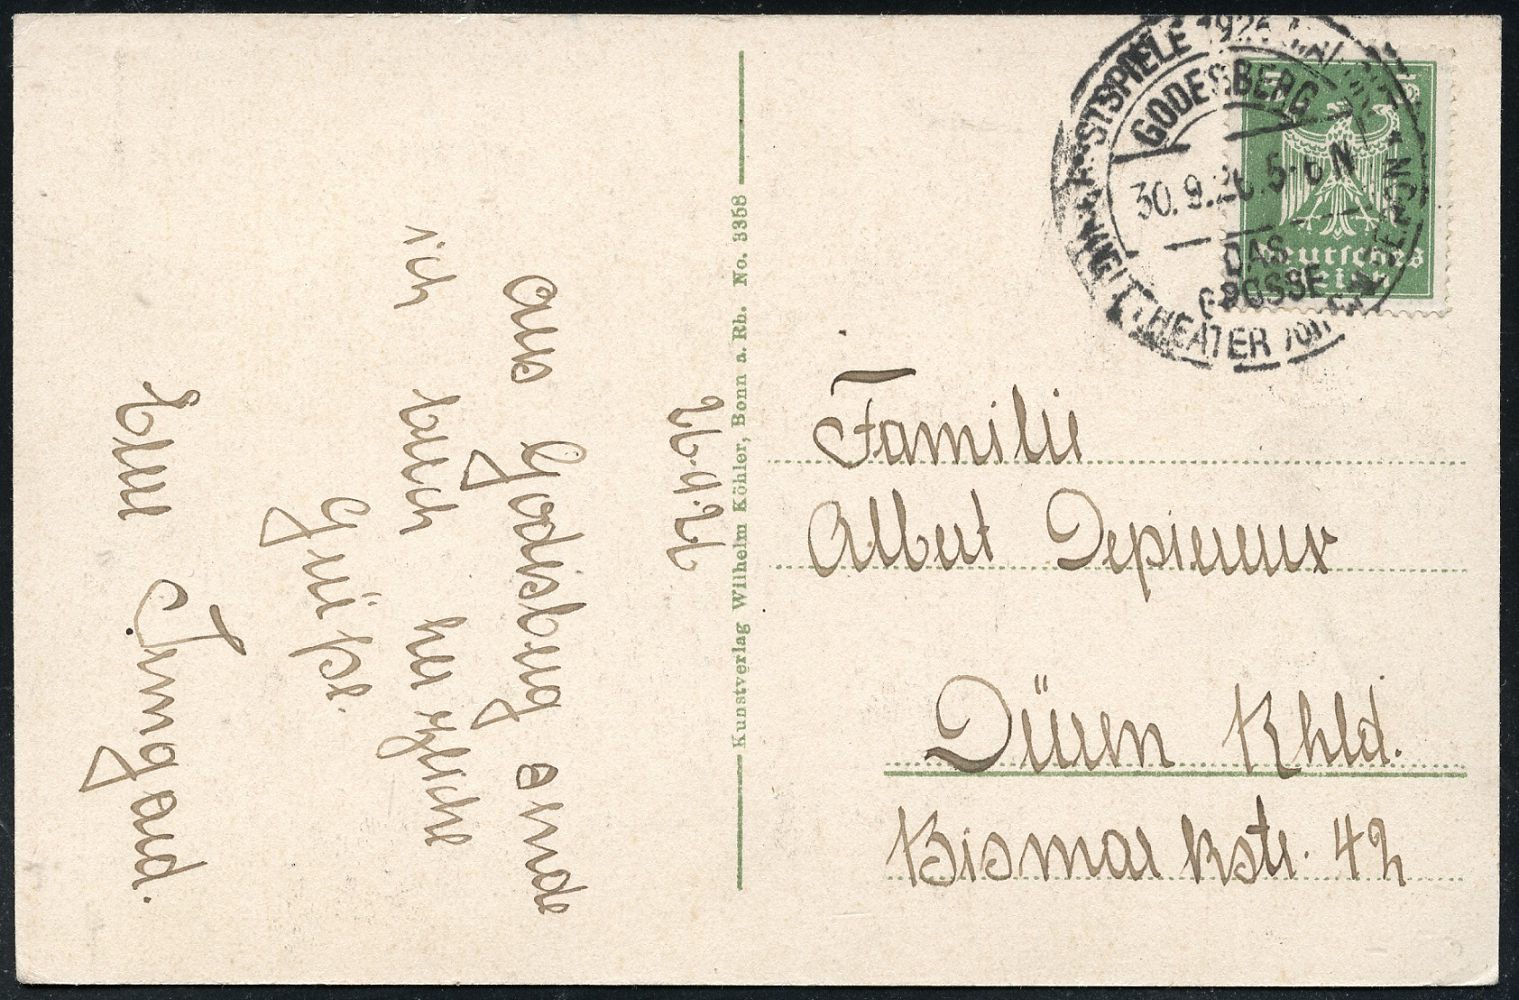 26.9.26
Aus Godesberg sende
ich Euch herzliche
Grüße.
Eure Irmgard.
Kunstverlag Wilhelm Köhler, Bonn a. Rh. No. 3358
GODESBERG
30.9.26. 5-6 N
DAS
GROSSE
STSPIELE 1926
THEATER
Deutsches
Reich
Familie
Albert Depiereux
Düren Rhld.
Bismarkstr. 42